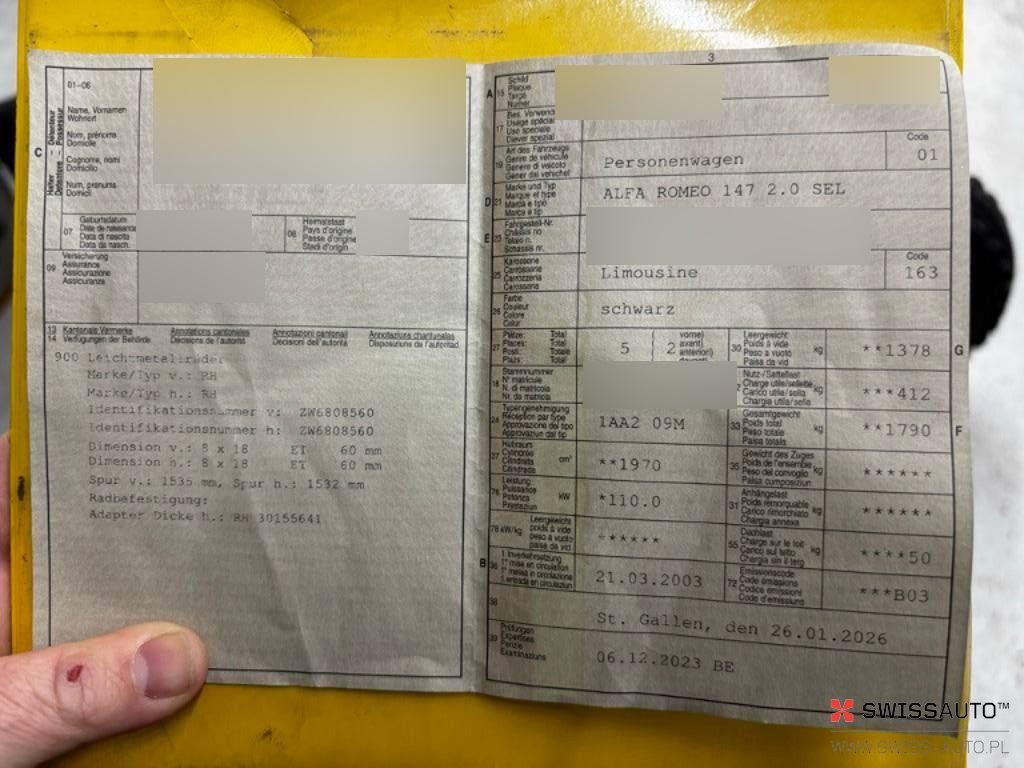 3
01-06
Name, Vornamen
Wohnort
Nom, prénoms
Domicile
Cognome, nomi
Domicilio
Num, pronums
Domicil
C
Halter - Détenteur
Detentore - Possessur
07
Geburtsdatum
Date de naissance
Data di nascita
Data da nasch.
08
Heimatstaat
Pays d'origine
Passe d'origine
Stadi d'origin
09
Versicherung
Assurance
Assicurazione
Assicuranza
13
14
Kantonale Vermerke
Verfügungen der Behörde
Annotations cantonales
Décisions de l'autorité
Annotazioni cantonali
Decisioni dell'autorità
Annotaziuns chantunalas
Disposiziuns da l'autoritad
900 Leichtmetallräder
Marke/Typ v.: RH
Marke/Typ h.: RH
Identifikationsnummer v: ZW6808560
Identifikationsnummer h: ZW6808560
Dimension v.: 8 x 18 ET 60 mm
Dimension h.: 8 x 18 ET 60 mm
Spur v.: 1535 mm, Spur h.: 1532 mm
Radbefestigung:
Adapter Dicke h.: RH 30155641
A
15
Schild
Plaque
Targa
Numer
17
Bes. Verwend
Usage spécial
Uso speciale
Diever spezial
19
Art des Fahrzeugs
Genre de véhicule
Genere di veicolo
Gener dal vehichel
Personenwagen
Code
01
D
21
Marke und Typ
Marque et type
Marca e tipo
Marca e tip
ALFA ROMEO 147 2.0 SEL
E
23
Fahrgestell-Nr.
Châssis no
Telaio n.
Schassis nr.
25
Karosserie
Carrosserie
Carrozzeria
Carossaria
Limousine
Code
163
26
Farbe
Couleur
Colore
Colur
schwarz
27
Plätze: Total
Places: Total
Posti: Totale
Plazs: Total
5
2
vorne)
avant)
anteriori)
30
Leergewicht
Poids à vide
Peso a vuoto
Paisa da vid
kg
**1378
G
18
Stammnummer
N° matricule
N. di matricola
Nr. da matricla
Nutz-/Sattellast
Charge utile/sellette
Carico utile/sella
Chargia utila/sella
kg
***412
24
Typengenehmigung
Réception par type
Approvazione del tipo
Approvaziun dal tip
1AA2 09M
33
Gesamtgewicht
Poids total
Peso totale
Paisa totala
kg
**1790
F
37
Hubraum
Cylindrée
Cilindrata
Cilindrada
cm³
**1970
35
Gewicht des Zuges
Poids de l'ensemble
Peso del convoglio
Paisa cumposiziun
kg
******
76
Leistung
Puissance
Potenza
Prestaziun
kW
*110.0
31
Anhängelast
Poids remorquable
Carico rimorchiato
Chargia annexa
kg
******
78 kW/kg
Leergewicht
poids à vide
peso a vuoto
paisa da vid
*****
55
Dachlast
Charge sur le toit
Carico sul tetto
Chargia sin il tetg
kg
****50
B
36
1. Inverkehrsetzung
1re mise en circulation
1a messa in circolazione
1. entrada en circulaziun
21.03.2003
72
Emissionscode
Code émissions
Codice emissioni
Code d'emissiuns
***B03
38
St. Gallen, den 26.01.2026
39
Prüfungen
Expertises
Perizie
Examinaziuns
06.12.2023 BE
SWISSAUTO™
WWW.SWISS-AUTO.PL